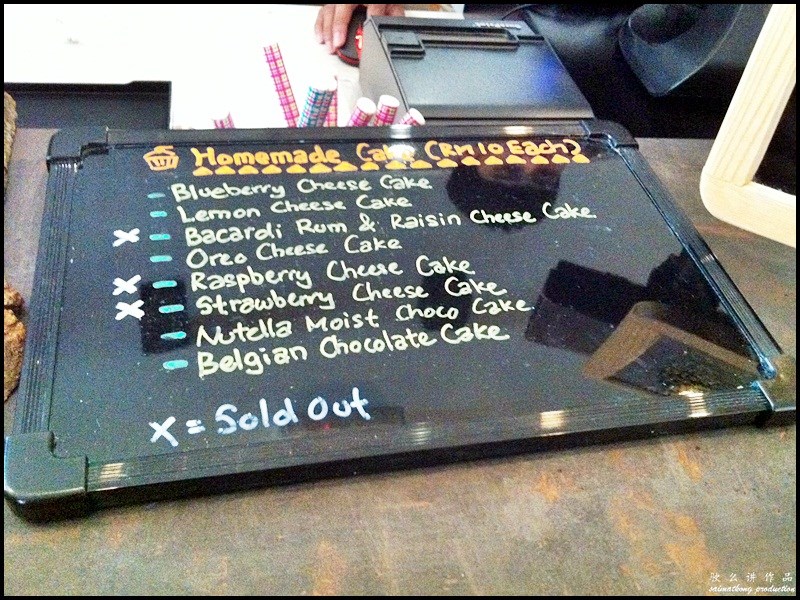 Homemade Cake (RM10 Each)
- Blueberry Cheese Cake
- Lemon Cheese Cake
X - Bacardi Rum & Raisin Cheese Cake
- Oreo Cheese Cake
X - Raspberry Cheese Cake
X - Strawberry Cheese Cake
- Nutella Moist Choco Cake
- Belgian Chocolate Cake
X = Sold Out
saimatkong production